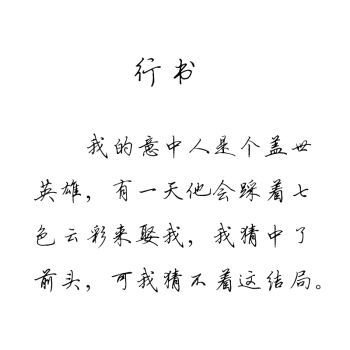 行书
我的意中人是个盖世
英雄，有一天他会踩着七
色云彩来娶我，我猜中了
前头，可我猜不着这结局。